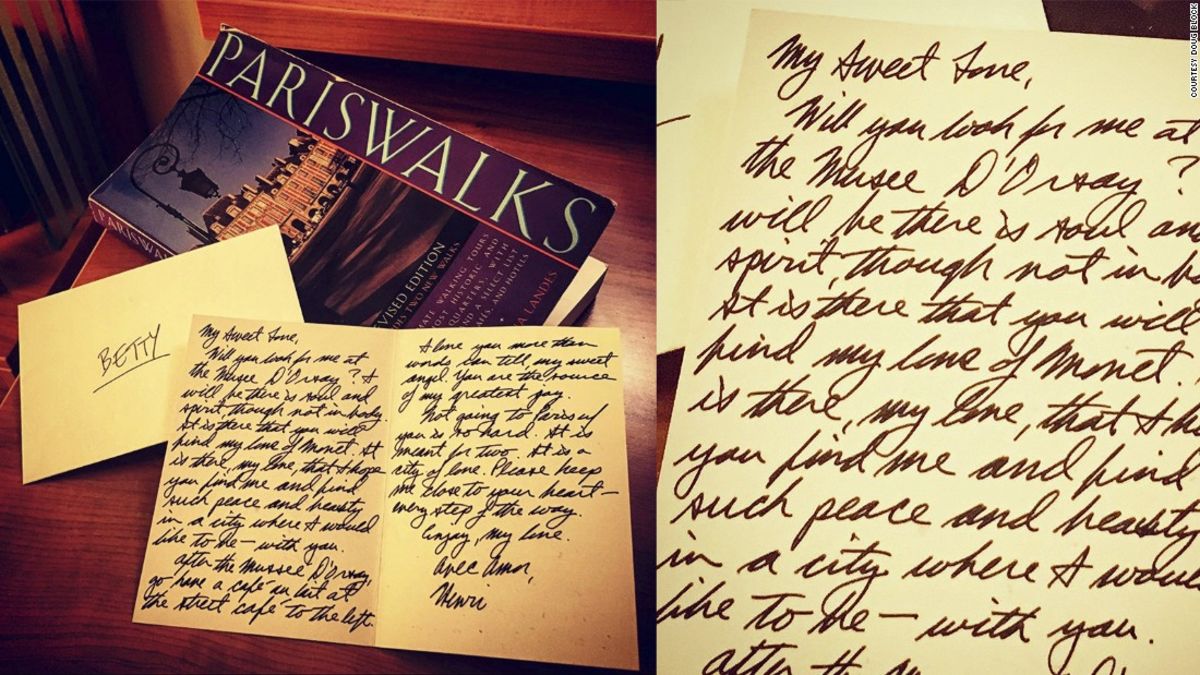 PARISWALKS
PARISWAL
REVISED EDITION
TWO NEW WALKS
WALKING TOURS
HISTORIC AND
QUARTERS WITH
AND A SELECT LIST
AND HOTELS
LANDES
BETTY
My Sweet Love,
Will you look for me at
the Musee D'Orsay? I
will be there is soul and
spirit, though not in body.
It is there that you will
find my love of Monet. It
is there, my love, that I hope
you find me and find
such peace and beauty
in a city where I would
like to be — with you.
After the Mussee D'Orsay,
go have a café au lait at
the street café to the left.
I love you more than
words can tell, my sweet
angel. You are the source
of my greatest joy.
Not going to Paris w/
you is so hard. It is
meant for two. It is a
city of love. Please keep
me close to your heart —
every step of the way.
Enjoy, my love.
Avec Amor,
Henri
My Sweet Love,
Will you look for me at
the Musee D'Orsay?
will be there is soul an
spirit, though not in b
It is there that you will
find my love of Monet.
is there, my love, that I ho
you find me and find
such peace and beauty
in a city where I woul
like to be — with you.
after the
COURTESY DOUG BLOCK